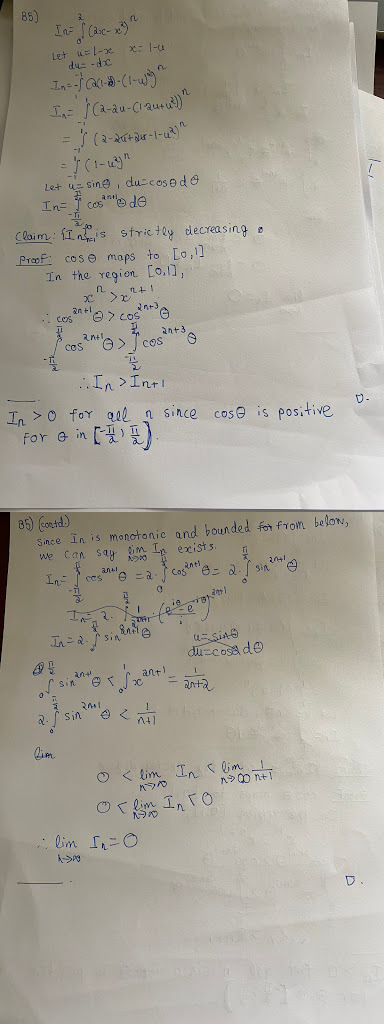 85)
In = ∫₀² (2x - x²)ⁿ
Let u = 1-x x = 1-u
du = -dx
In = -∫₁⁻¹ (2(1-u) - (1-u)²)ⁿ
In = ∫₋₁¹ (2-2u-(1-2u+u²))ⁿ
= ∫₋₁¹ (2-2u+2u-1-u²)ⁿ
= ∫₋₁¹ (1-u²)ⁿ
Let u = sinθ, du = cosθ dθ
In = ∫_{-π/2}^{π/2} cos²ⁿ⁺¹θ dθ
Claim: {In}_{n=1}^∞ is strictly decreasing.
Proof: cosθ maps to [0,1]
In the region [0,1],
xⁿ > xⁿ⁺¹
∴ cos²ⁿ⁺¹θ > cos²ⁿ⁺³θ
∫_{-π/2}^{π/2} cos²ⁿ⁺¹θ > ∫_{-π/2}^{π/2} cos²ⁿ⁺³θ
∴ In > In+1
□.
In > 0 for all n since cosθ is positive
For θ in [-π/2, π/2].
85) (contd.)
Since In is monotonic and bounded from below,
we can say lim_{n→∞} In exists.
In = ∫_{-π/2}^{π/2} cos²ⁿ⁺¹θ = 2·∫₀^{π/2} cos²ⁿ⁺¹θ = 2·∫₀^{π/2} sin²ⁿ⁺¹θ
In = 2·∫₀^{π/2} sin²ⁿ⁺¹θ
u = sinθ
du = cosθ dθ
∫₀^{π/2} sin²ⁿ⁺¹θ < ∫₀¹ x²ⁿ⁺¹ = 1/(2n+2)
2·∫₀^{π/2} sin²ⁿ⁺¹θ < 1/(n+1)
lim
0 < lim_{n→∞} In < lim_{n→∞} 1/(n+1)
0 < lim_{n→∞} In < 0
∴ lim_{n→∞} In = 0
□.